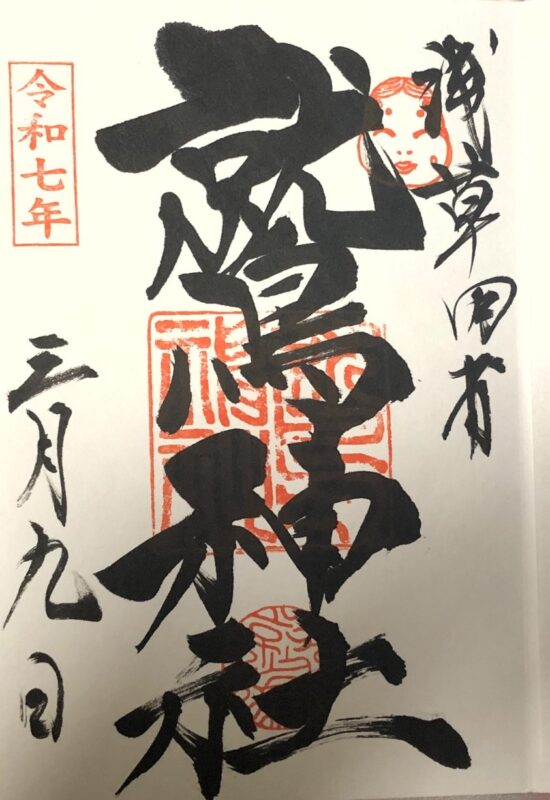 浅草田甫
鷲神社
令和七年
三月九日